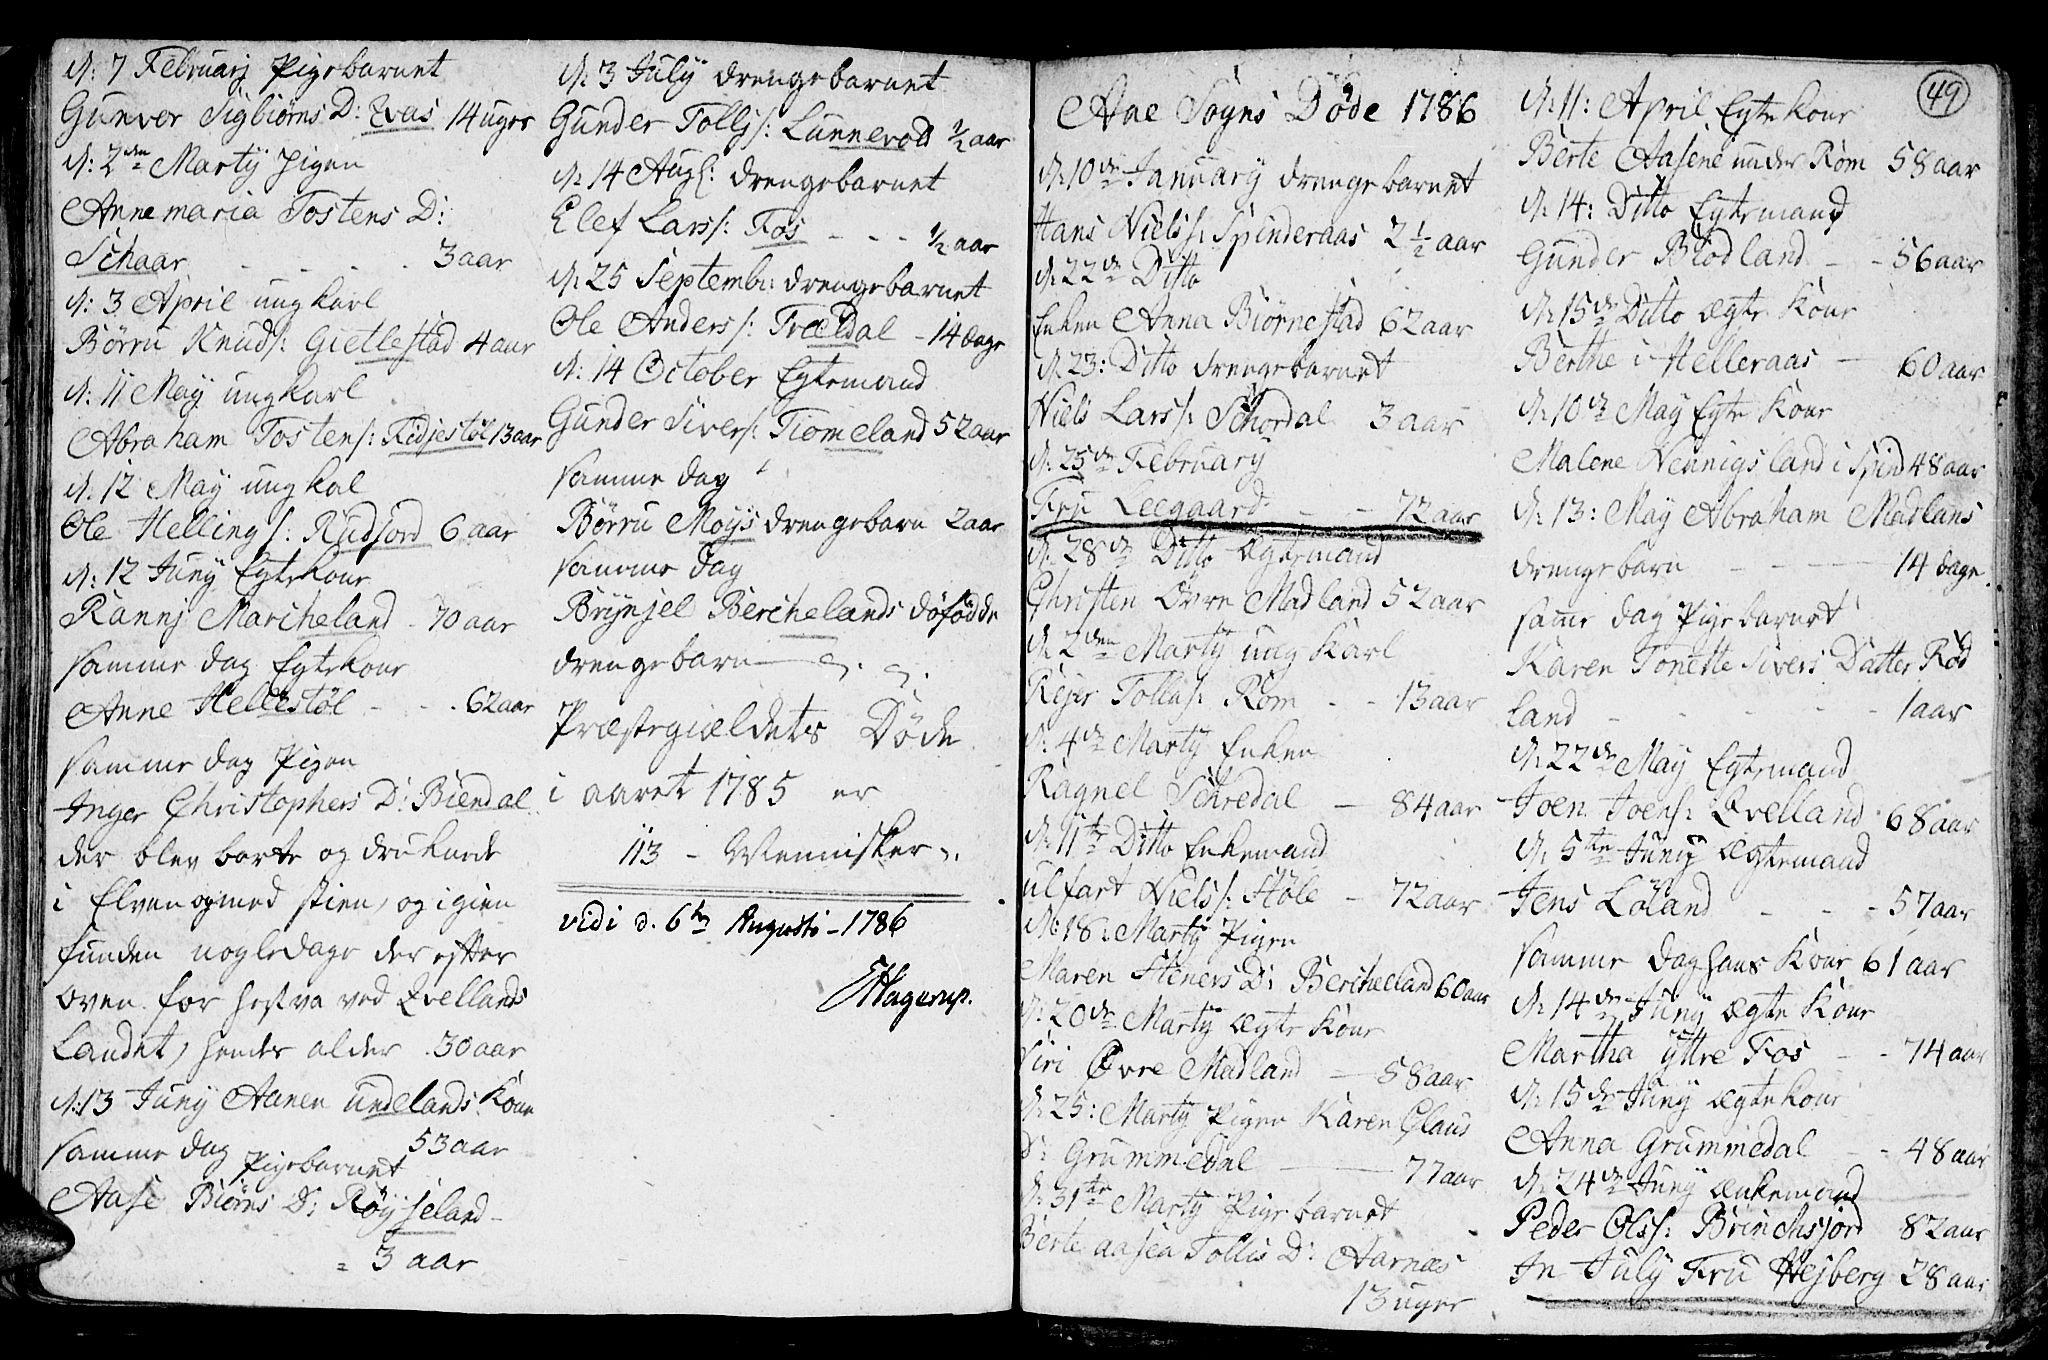 d: 7 Februarj Pigebarnet
Gunver Sigbiørns D: Evas 14 uger
d: 2den Martÿ pigen
Anne maria Tostens D:
Schaar - - - - 3 aar
d: 3 April ung karl
Børru Knuds/: Gietlestad 4 aar
d: 11 Maÿ ungkarl
Abraham Tostens/: Ridjestøl 13 aar
d: 12 Maÿ ung kal
Ole Hellings/: Rudjord 6 aar
d: 12 Junÿ Egtekone
Rannj Marcheland - 70 aar
samme dag Egtekone
Anne Hellestøl - - - 62 aar
samme dag Pigen
Inger Christophers D: Biendal
der blev borte og druknede
i Elven og med stien, og igien
funden nogle dage der efter
oven for hestva ved Qvellands
Landet, hendes alder 30 aar
d: 13 Junÿ Aanen undelands Kone
53 aar
samme dag Pigebarnet
Aase Biørns D: Røÿseland -
= 3 aar
d: 3 Julÿ drengebarnet
Gunder Tollj/: Lunnevold ½ aar
d: 14 Aug/: drengebarnet
Elef Lars/: Fos - - - ½ aar
d: 25 Septemb: drengebarnet
Ole Anders/: Trældal - 14 dage
d: 14 October Egtemand
Gunder Sivers/: Tiomeland 52 aar
samme dag
Børru Moÿs drengebarn 2 aar
samme dag
Brÿnjel Berchelands døfødde
drengebarn
Præstegieldets Døde
i aaret 1785 er
113 - Mennisker
vidi d. 6te Augusti - 1786
EHagerup.
Aae Sogns Døde 1786
49
d: 10de Januarÿ drengebarnet
Hans Niels/: Spinderaas 2 ½ aar
d: 22de Ditto
Enken Anna Biørnestad 62 aar
d: 23: Ditto drengebarnet
Niels Lars/: Schordal 3 aar
d: 25de Februarÿ
Fru Leegaard - - 72 aar
d: 28de Ditto ægtemand
Christen Øvre Madland 52 aar
d: 2den Martÿ ung Karl
Rejer Tollas/: Rom - - 13 aar
d: 4de Martÿ Enken
Ragnel Schredal - 84 aar
d: 11te Ditto Enkemand
ulfart Niels/: Støle - 72 aar
d: 18: Martÿ Pigen
Maren Steners D: Bercheland 60 aar
d: 20de Martÿ ægte Kone
Siri Øvre Madland - 58 aar
d: 25: Martÿ Pigen Karen Claus
D: Grummedal - 77 aar
d: 31te Martÿ Pige barnet
Berte aasea Tollis D: Aarnæs
13 uger
d: 11: April Egte Kone
Berte Aasene under Rom 58 aar
d: 14: Ditto Egtemand
Gunder Blodland - - 56 aar
d: 15de Ditto ægte Kone
Berthe i Helleraas - 60 aar
d: 10de Maÿ Egte Kone
Malene Hennigsland i Spind 48 aar
d: 13: Maÿ Abraham Madlans
drengebarn - - - 14 dage.
samme dag Pigebarnet
Karen Tonette Sivers Datter Rød
land - - - - - 1 aar
d: 22de Maÿ Egtemand
Joen Joens/: Qvelland 68 aar
d: 5te Junÿ ægtemand
Jens Løland - - - 57 aar
samme dag hans Kone 61 aar
d: 14de Junÿ ægte Kone
Martha ÿttre Fos - - 74 aar
d: 15de Junÿ ægtekone
Anna Grummedal - - 48 aar
d: 24de Junÿ ænkemand
Peder Ols/: Brinchsjord 82 aar
In Julÿ Fru Hejberg 28 aar